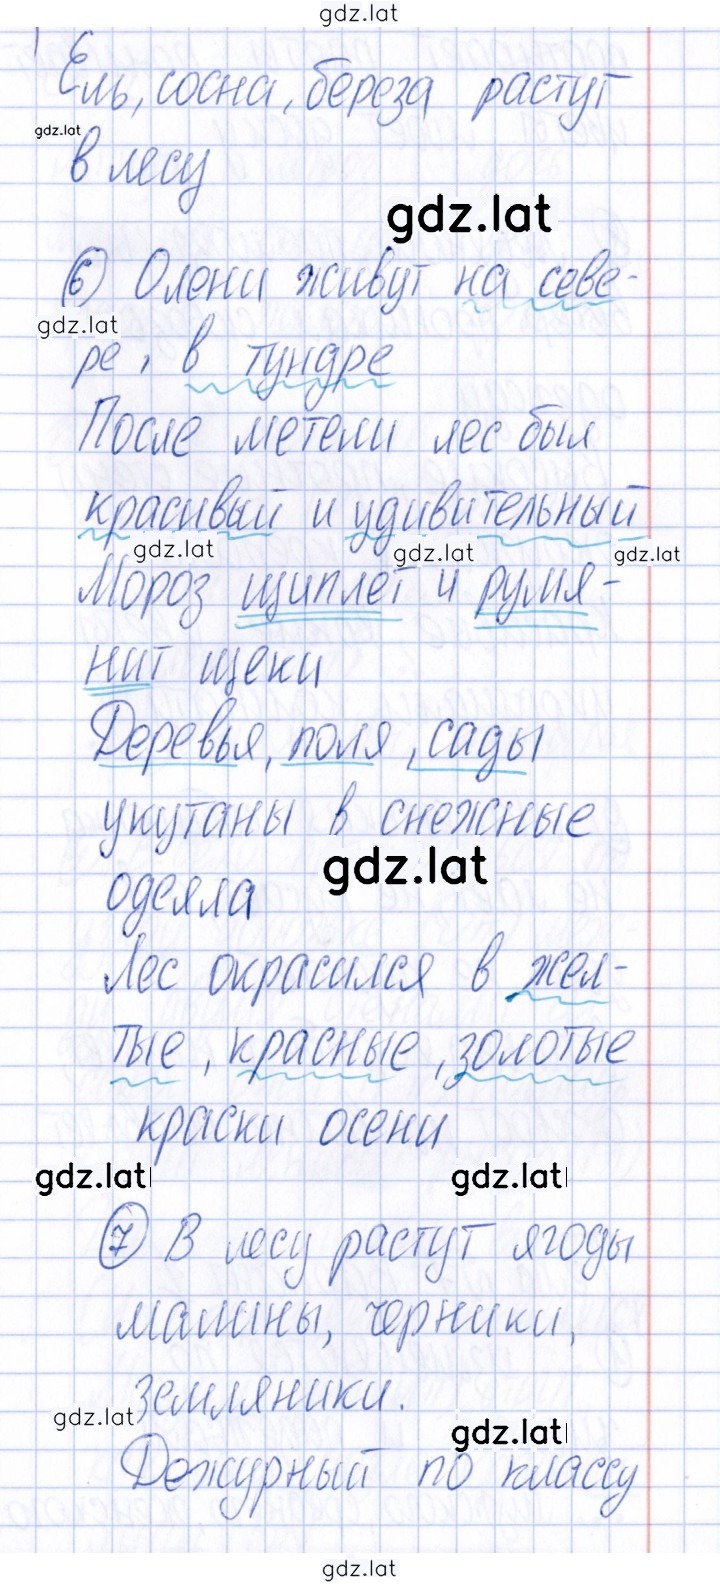 gdz.lat
Ель, сосна, береза растут
gdz.lat
в лесу
gdz.lat
6 Олени живут на севе-
gdz.lat
ре, в тундре
После метели лес был
красивый и удивительный
gdz.lat gdz.lat gdz.lat
Мороз щиплет и румя-
нит щеки
Деревья, поля, сады
укутаны в снежные
gdz.lat
одеяла
Лес окрасился в жел-
тые, красные, золотые
краски осени
gdz.lat gdz.lat
7 В лесу растут ягоды
малины, черники,
земляники.
gdz.lat gdz.lat
Дежурный по классу
gdz.lat